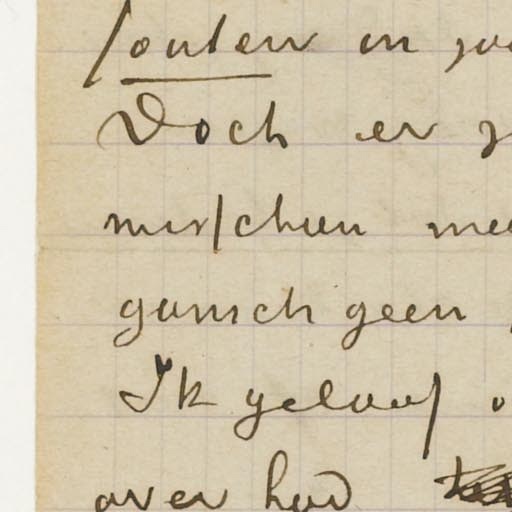 fouten en zoo
Doch er z
misschien mee
gansch geen
Ik geloof o
over had